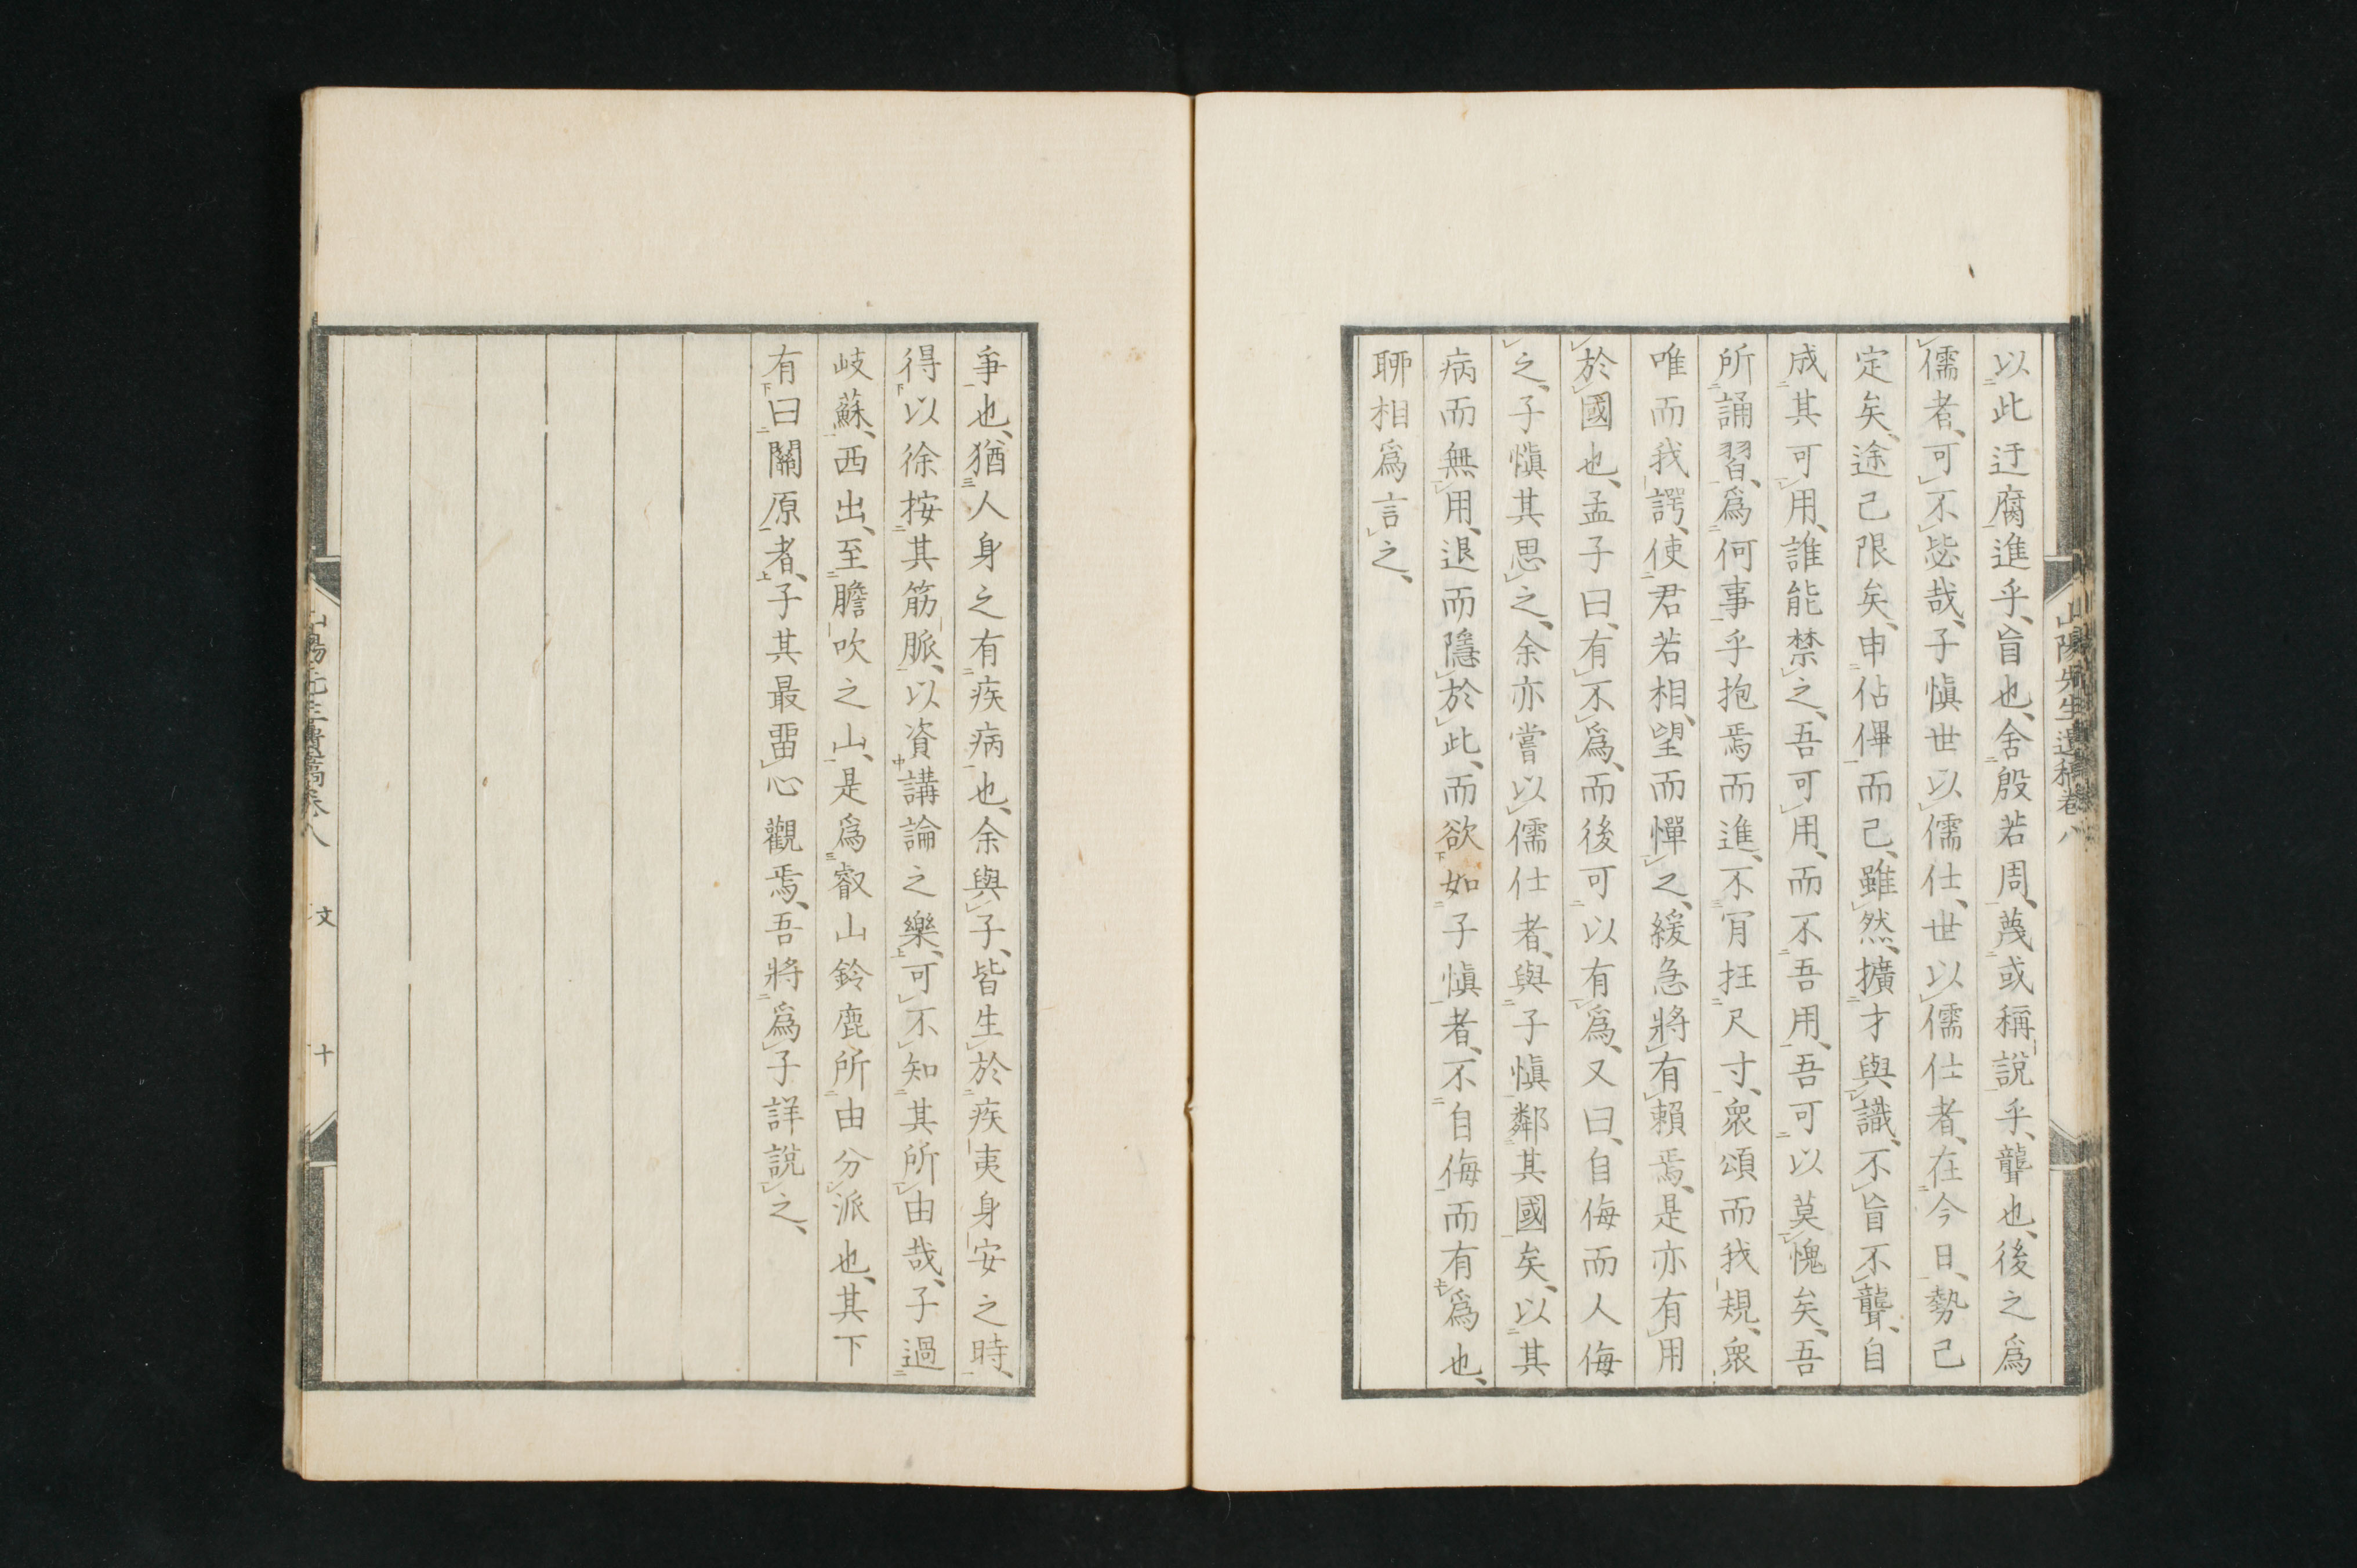 山陽先生遺稿卷八
以此迂腐進乎、盲也、舍殷若周、蔑或稱說乎、聾也、後之爲
儒者、可不毖哉、子愼世以儒仕、世以儒仕者、在今日、勢已
定矣、途已限矣、申佔俾而已、雖然、擴才與識、不盲不聾、自
成其可用、誰能禁之、吾可用、而不吾用、吾可以莫愧矣、吾
所誦習、爲何事乎、抱焉而進、不肎抂尺寸、衆頌而我規、衆
唯而我諤、使君若相、望而憚之、緩急將有賴焉、是亦有用
於國也、孟子曰、有不爲、而後可以有爲、又曰、自侮而人侮
之、子愼其思之、余亦嘗以儒仕者、與子愼鄰其國矣、以其
病而無用、退而隱於此、而欲如子愼者、不自侮而有爲也、
聊相爲言之、
爭也、猶人身之有疾病也、余與子、皆生於疾夷身安之時、
得以徐按其筋脈、以資講論之樂、可不知其所由哉、子過
岐蘇、西出、至膽吹之山、是爲叡山鈴鹿所由分派也、其下
有曰關原者、子其最畱心觀焉、吾將爲子詳說之、
山陽先生遺稿卷八 文 十